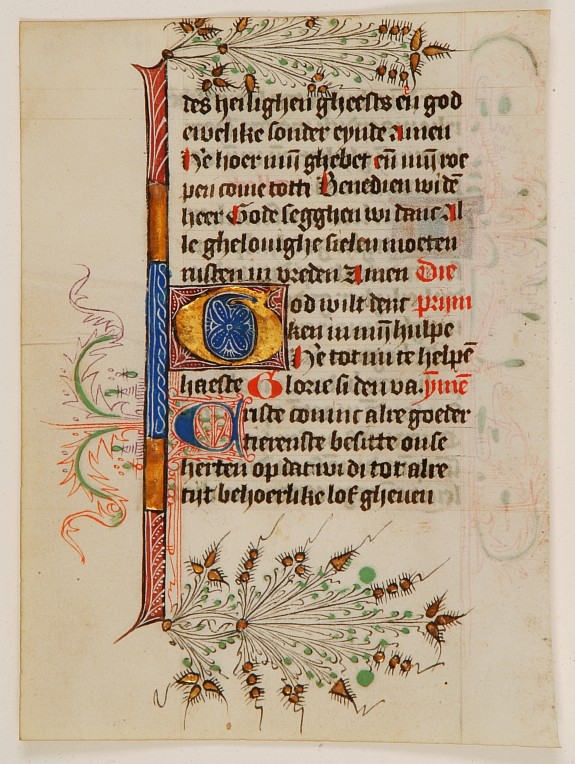 des heilighen gheests en̄ god
ewelike sonder eynde Amen
He hoer mijn ghebet en̄ mijn roe
pen come totti Benedien wi dē
heer Gode segghen wi danc Al
le ghelouighe sielen moeten
rusten in vreden Amen Die
God wilt denc prijm
ken in mijn hulpe
He tot mi te helpē
haeste Glorie si den va. ymē
Criste cominc alre goeder
therenste besitte onse
herten op dat wi di tot alre
tijt behoerlike lof gheuen